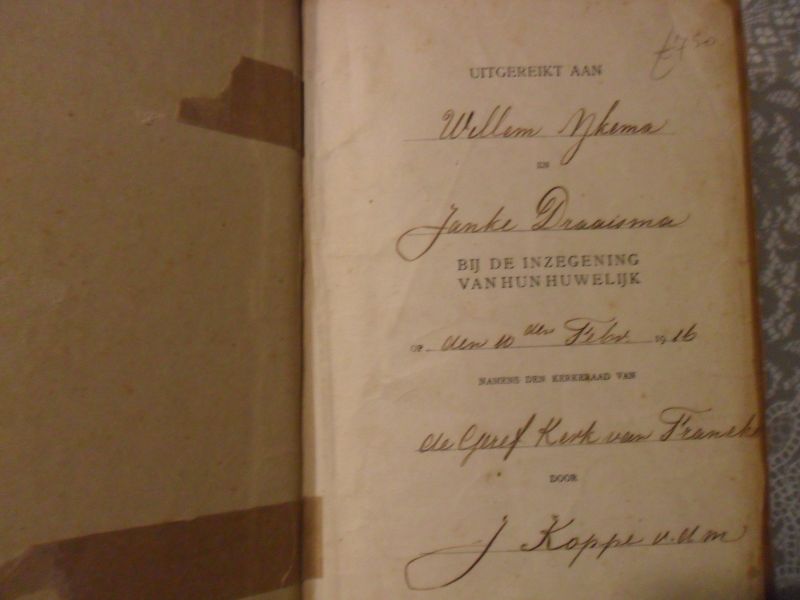 £ 7 50
UITGEREIKT AAN
Willem Ykema
EN
Janke Draaisma
BIJ DE INZEGENING
VAN HUN HUWELIJK
OP den 10 den Febr. 1916
NAMENS DEN KERKERAAD VAN
de Geref Kerk van Franeke
DOOR
J Koppe v.d.m